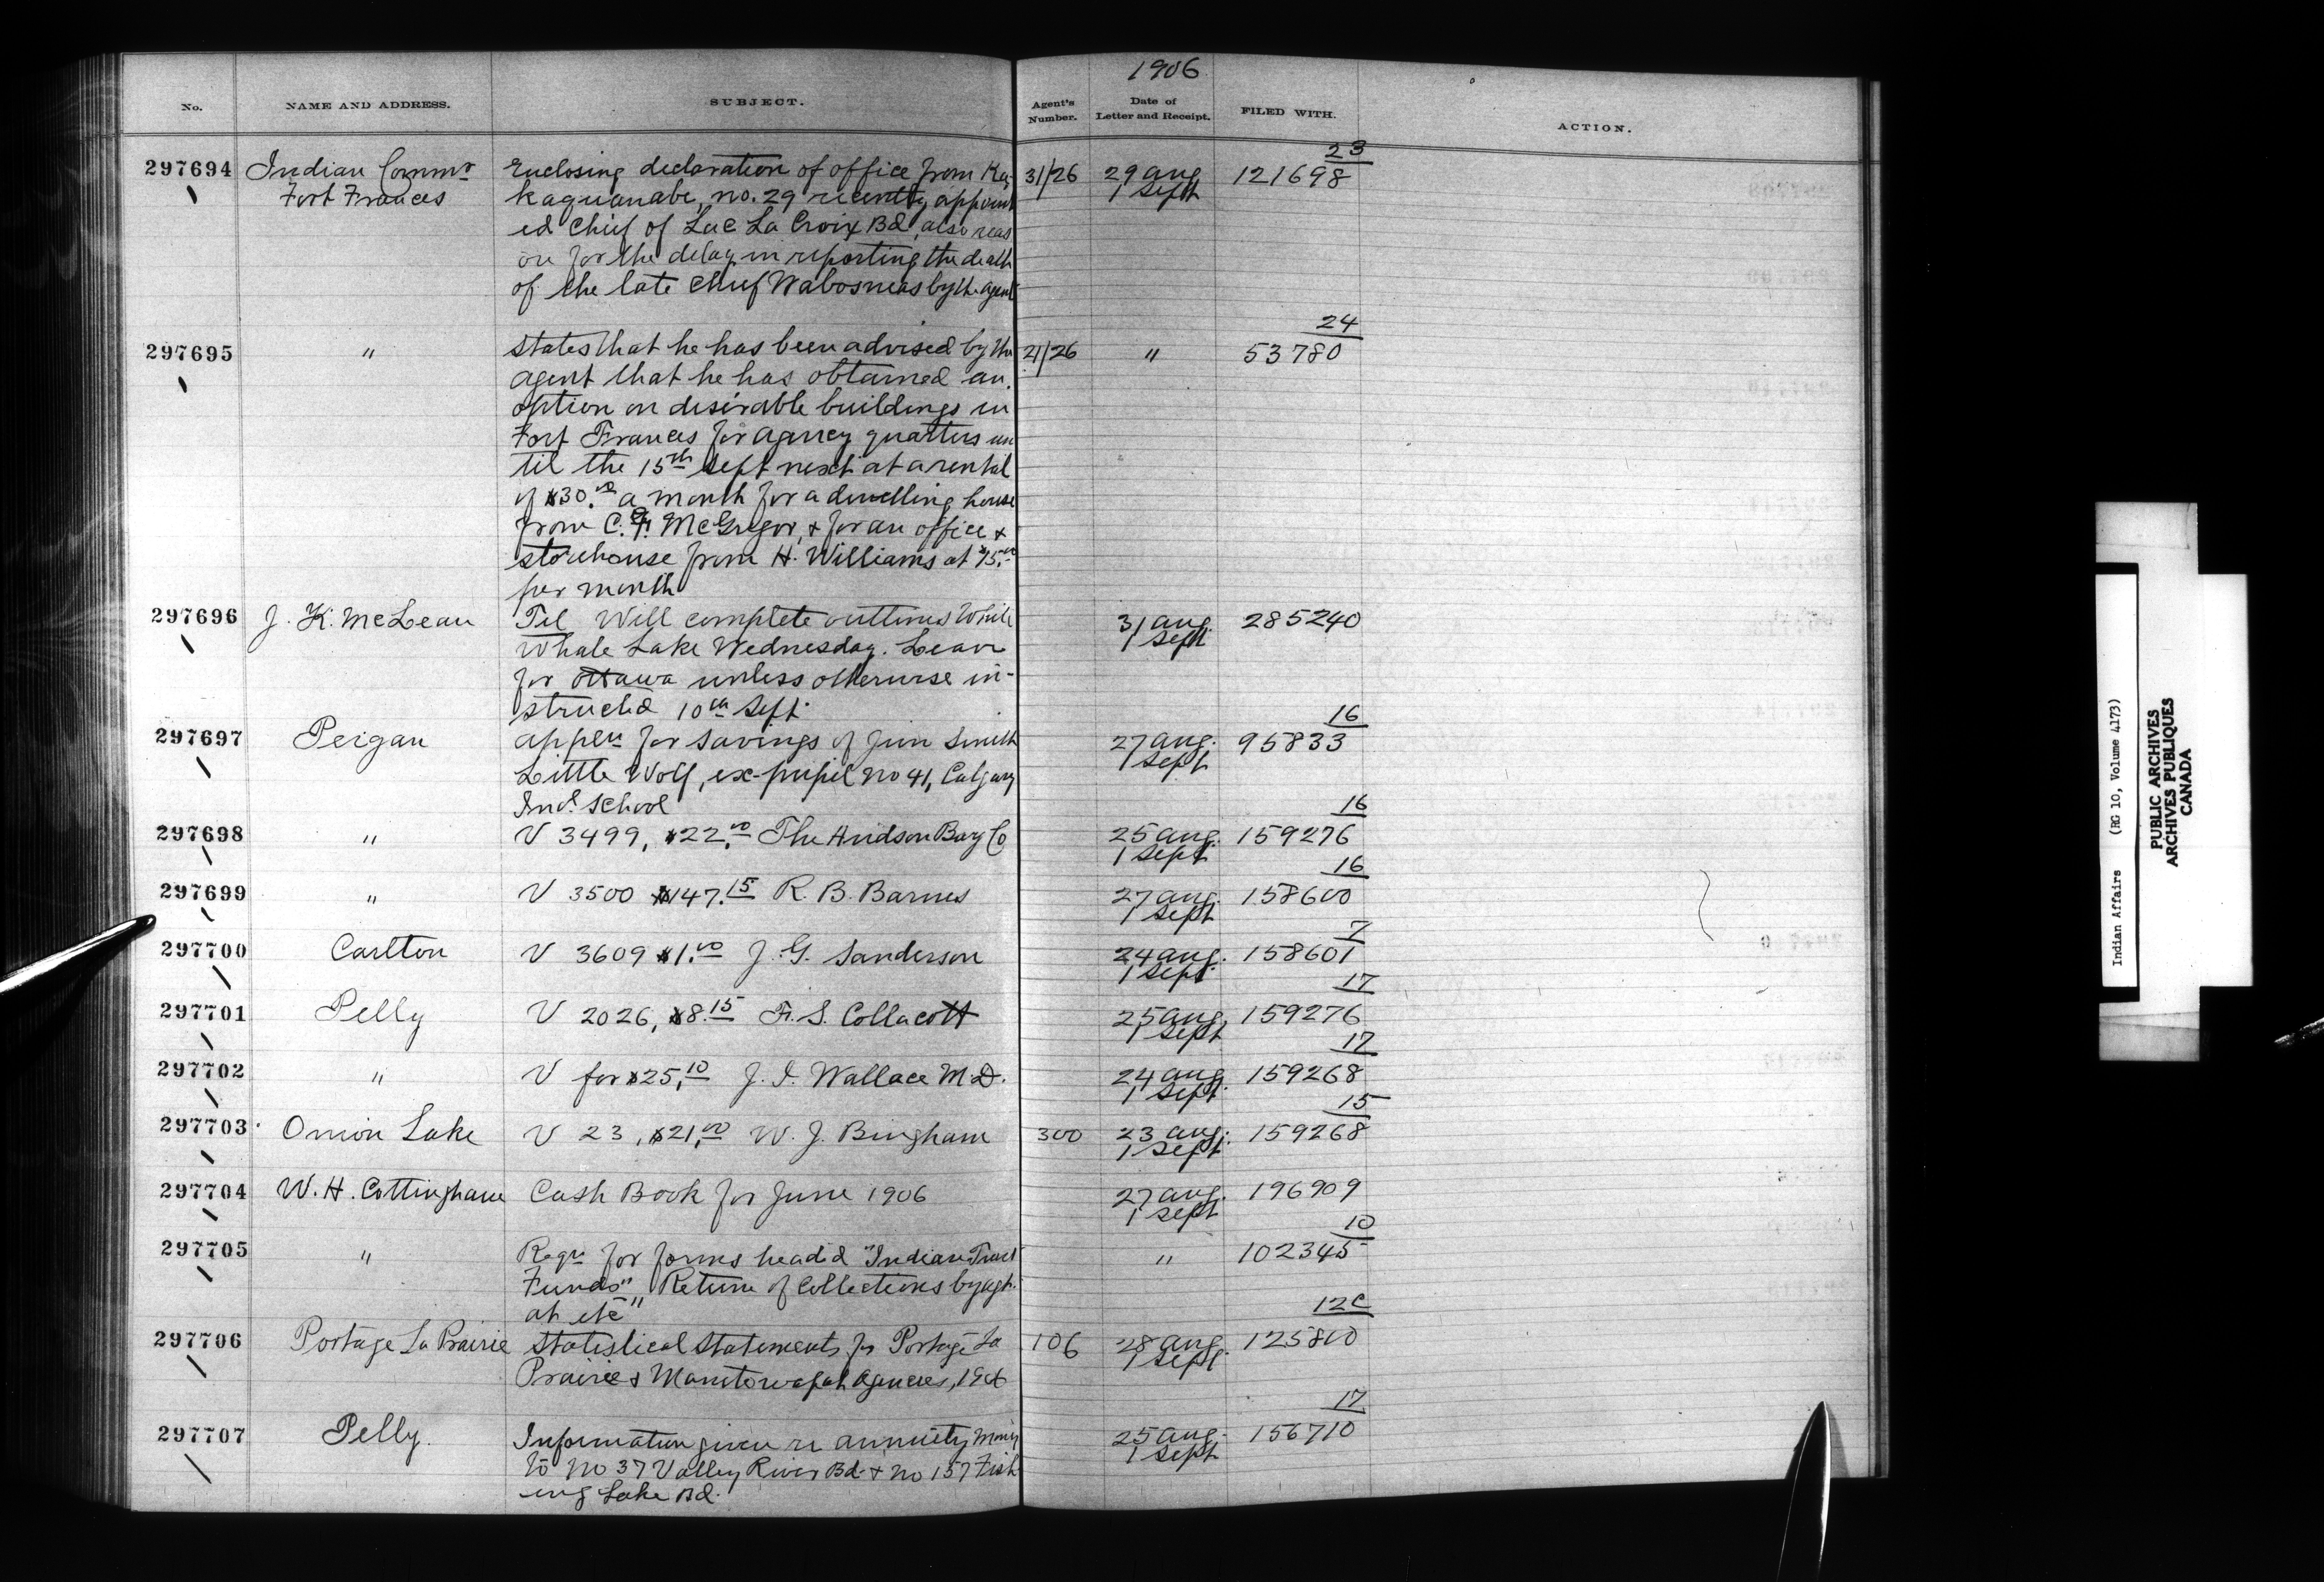 1906
No. NAME AND ADDRESS. SUBJECT. Agent's Number. Date of Letter and Receipt. FILED WITH. ACTION.
23
297694 Indian Commr Enclosing declaration of office from Ka- 31/26 29 Aug 121698
Fort Frances kaquanabe, no. 29 recently appoint 1 Sept
ed Chief of Lac La Croix Bd, also reas
on for the delay in reporting the death
of the late Chief Wabosmeas by the agent
24
297695 " States that he has been advised by the 21/26 " 53780
agent that he has obtained an
option on desirable buildings in
Fort Frances for agency quarters un
til the 15th Sept next at a rental
of $30.00 a month for a dwelling house
from C. F. McGregor, & for an office &
storehouse from H. Williams at $15.00
per month
297696 J. K. McLean Tel Will complete outlines White 31 Aug. 285240
Whale Lake Wednesday. Leave 1 Sept
for Ottawa unless otherwise in-
structed 10th Sept.
16
297697 Peigan Appln for savings of Jim Smith 27 Aug. 95833
Little Wolf, ex-pupil no 41, Calgary 1 Sept
Indl School
16
297698 " V 3499, $22.00 The Hudson Bay Co 25 Aug. 159276
1 Sept
16
297699 " V 3500 $147.15 R. B. Barnes 27 Aug. 158600
1 Sept
7
297700 Carlton V 3609 $1.00 J. G. Sanderson 24 Aug. 158601
1 Sept.
17
297701 Pelly V 2026, $8.15 F. S. Collacott 25 Aug. 159276
1 Sept
17
297702 " V for $25.10 J. I. Wallace M.D. 24 Aug. 159268
1 Sept.
15
297703 Onion Lake V 23, $21.00 W. J. Bingham 300 23 Aug. 159268
1 Sept
297704 W. H. Cottingham Cash Book for June 1906 27 Aug. 196909
1 Sept
10
297705 " Reqn for forms headed "Indian Trust " 102345
Funds", "Return of Collections by agt.
at etc"
12C
297706 Portage La Prairie Statistical Statements for Portage La 106 28 Aug. 125800
Prairie & Manitowapah Agencies, 1906 1 Sept.
17
297707 Pelly. Information given re annuity money 25 Aug. 156710
to No 37 Valley River Bd. & No 157 Fish 1 Sept
ing Lake Bd.
Indian Affairs (RG 10, Volume 4173)
PUBLIC ARCHIVES
ARCHIVES PUBLIQUES
CANADA